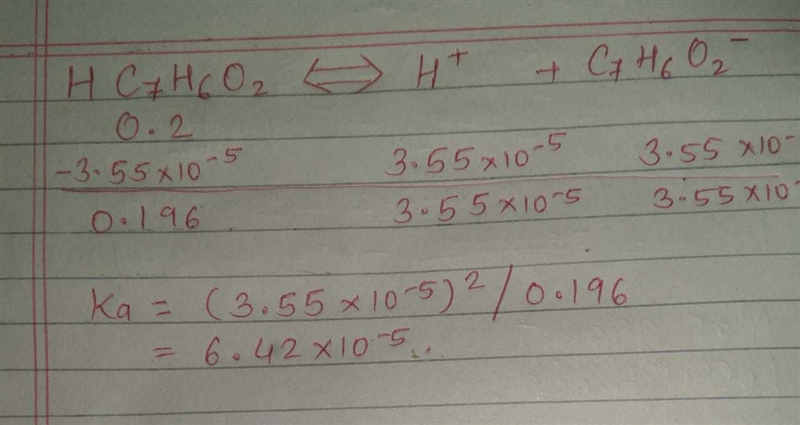 H C₇H₆O₂ ⇔ H⁺ + C₇H₆O₂⁻
0.2
-3.55×10⁻⁵ 3.55×10⁻⁵ 3.55×10⁻
0.196 3.55×10⁻⁵ 3.55×10⁻
Ka = (3.55×10⁻⁵)² / 0.196
= 6.42×10⁻⁵.